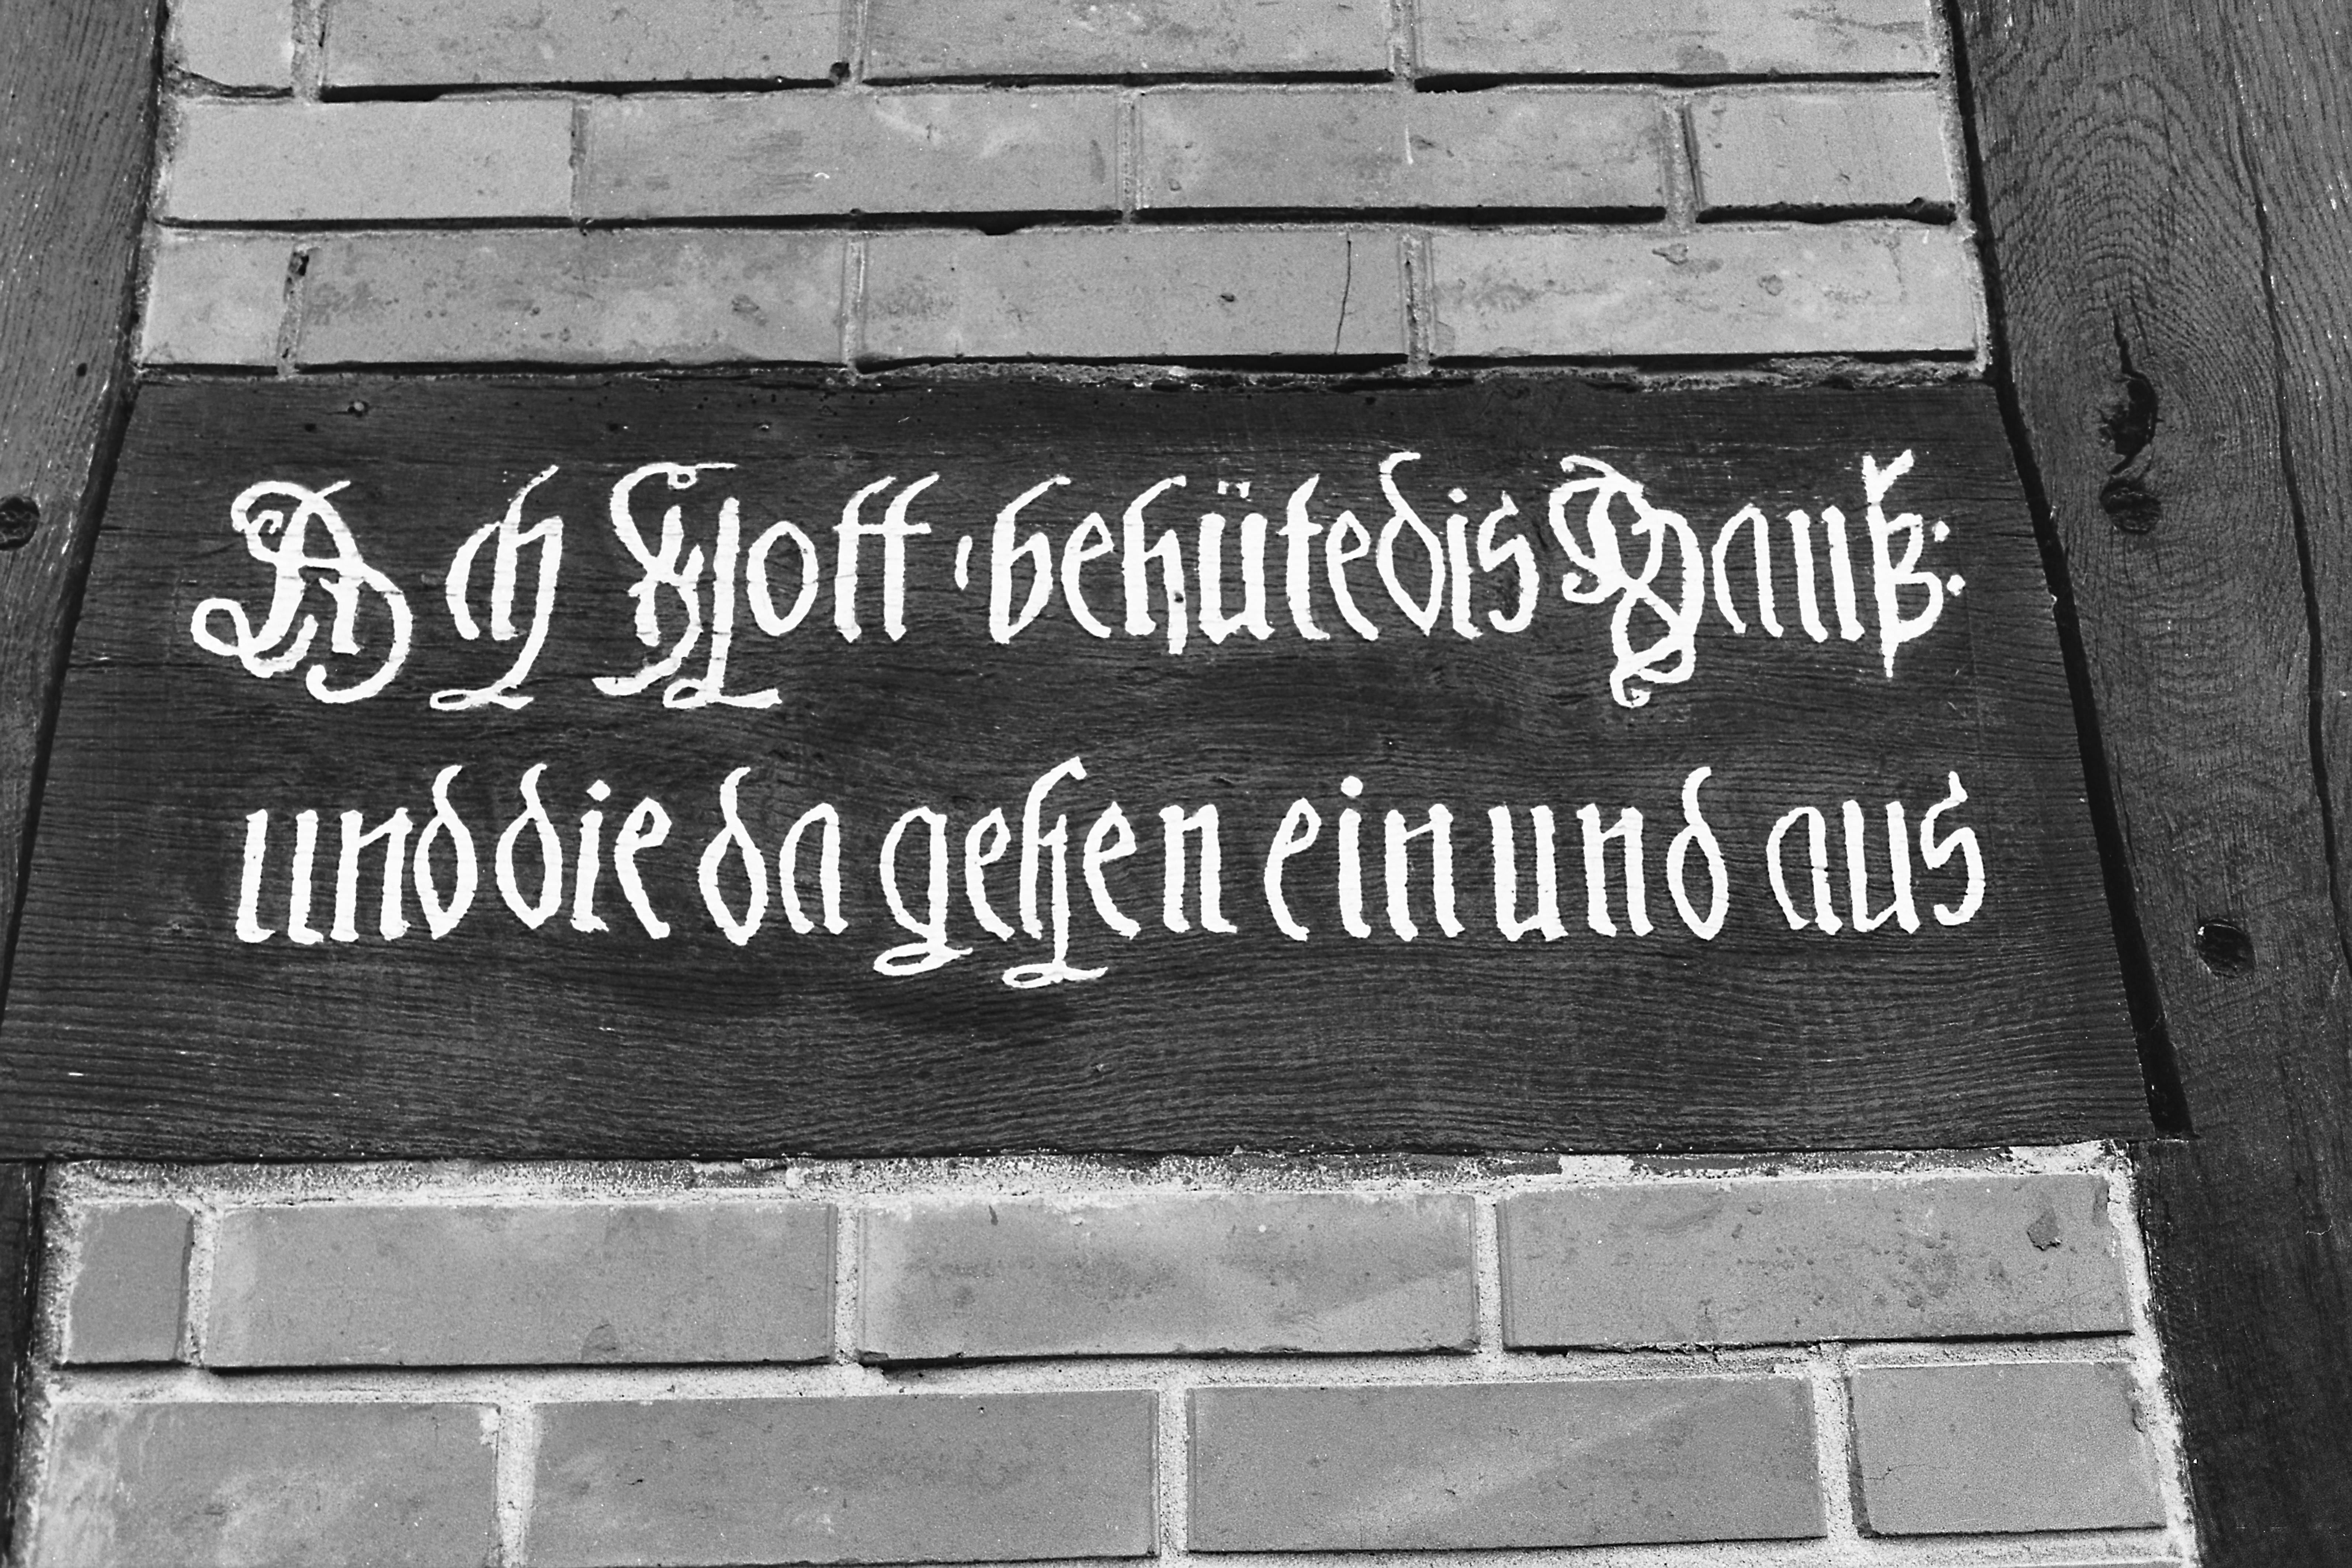 Ach Gott, behüte dis Hauß:
und die da gehen ein und aus